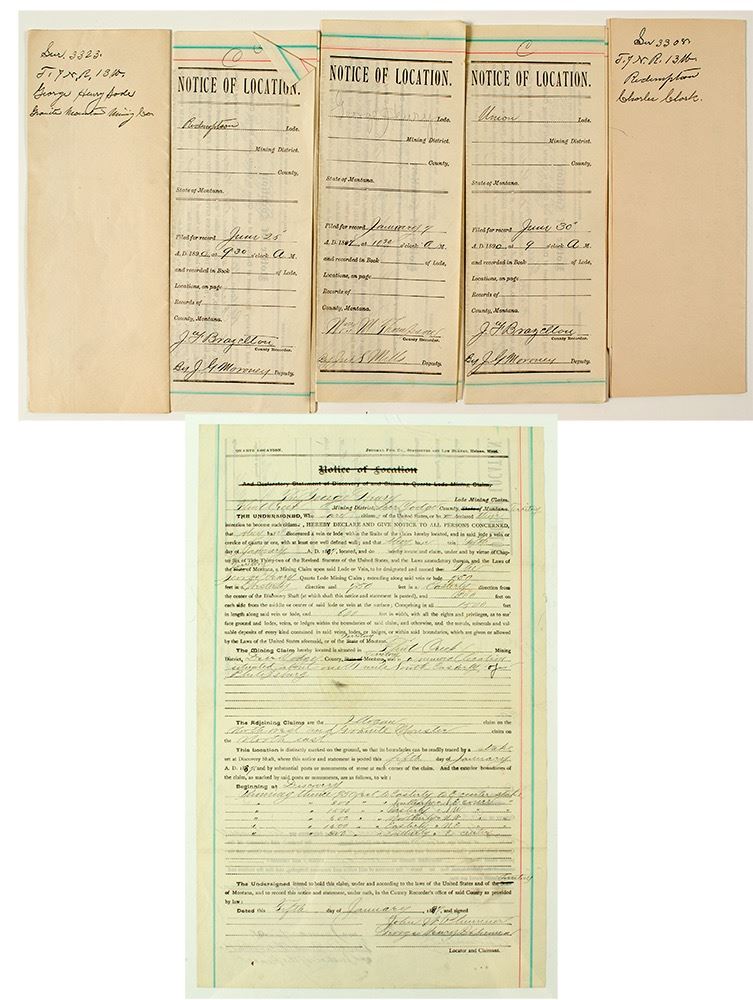 Sur. 3323.
T. 7 N. R. 13 W.
George Henry
Granite Mountain Mining Co
NOTICE OF LOCATION.
Redemption Lode.
Mining District.
County,
State of Montana.
Filed for record June 25
A. D. 1890 at 9 30 o'clock A M.
and recorded in Book of Lode,
Locations, on page
Records of
County, Montana.
J F Brazelton
County Recorder.
By J. G Moroney Deputy.
NOTICE OF LOCATION.
Lode.
Mining District.
County,
State of Montana.
Filed for record January 9
A. D. 18 at 10 30 o'clock A M.
and recorded in Book of Lode,
Locations, on page
Records of
County, Montana.
Wm M Thompson
County Recorder.
By Mills Deputy.
C
NOTICE OF LOCATION.
Union Lode.
Mining District.
County,
State of Montana.
Filed for record June 30
A. D. 1890 at 9 o'clock A M.
and recorded in Book of Lode,
Locations, on page
Records of
County, Montana.
J. F Brazelton
County Recorder.
By J. G Moroney Deputy.
Sur 3308
T. 7 N. R. 13 W.
Redemption
Charles Clark.
QUARTZ LOCATION.
Notice of Location
And Declaratory Statement of Discovery of and Claim to Quartz Lode Mining Claim,
Lode Mining Claim.
Flint Creek Mining District, Deer Lodge County, State of Montana Territory
THE UNDERSIGNED, Who are citizens of the United States, or have declared their
intention to become such citizens, HEREBY DECLARE AND GIVE NOTICE TO ALL PERSONS CONCERNED,
that they have discovered a vein or lode within the limits of the claim hereby located, and in said lode a vein or
crevice of quartz or ore, with at least one well defined wall; and that they have on this fifth
day of January A. D. 18 , located, and do hereby locate and claim, under and by virtue of Chap-
ter Six of Title Thirty-two of the Revised Statutes of the United States, and the Laws amendatory thereto, and the Laws of
the State of Montana, a Mining Claim upon said Lode or Vein, to be designated and named the The
George Quartz Lode Mining Claim; extending along said vein or lode 750
feet in a Westerly direction and 750 feet in a Easterly direction from
the center of the Discovery Shaft (at which shaft this notice and statement is posted), and 300 feet on
each side from the middle or center of said lode or vein at the surface; Comprising in all 1500 feet
in length along said vein or lode, and 600 feet in width, with all the rights and privileges, as to sur-
face ground and ledge, veins, or lodges within the boundaries of said claim, and otherwise, and the metals, minerals and val-
uable deposits of every kind contained in said veins, lodes, or ledges, or within said boundaries, which are given or allowed
by the Laws of the United States aforesaid, or of the State of Montana. Territory
The Mining Claim hereby located is situated in Flint Creek
District, Deer Lodge County, State of Montana, Territory and is a mineral location
situated about one mile North Easterly of
Philipsburg
The Adjoining Claims are the claim on the
North west and Granite claim on
the North east
This Location is distinctly marked on the ground, so that its boundaries can be readily traced by a stake
set at Discovery Shaft, where this notice and statement is posted this fifth day of January
A. D. 18 and by substantial posts or monuments of stone at each corner of the claim. And the exterior boundaries of
the claim, as marked by said posts or monuments, are as follows, to wit:
Beginning at Discovery
The Undersigned intend to hold this claim, under and according to the laws of the United States and of the State Territory
of Montana, and to record this notice and statement, under oath, in the County Recorder's office of said County as provided
by law:
Dated this Fifth day of January 18 , and signed
John
George Henry
Locator and Claimant.